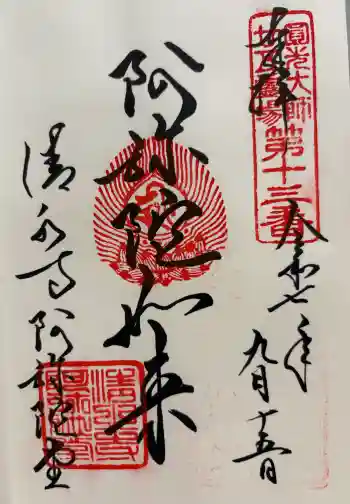 奉拝
圓光大師
二十五霊場
第十三番
令和七年
九月十五日
阿弥陀如来
清水寺阿弥陀堂